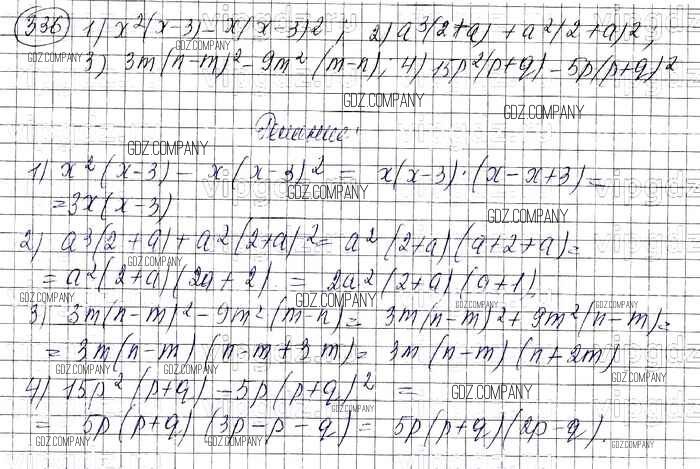 336 1) x²(x-3) - x(x-3)²; 2) a³(2+a) + a²(2+a)²;
3) 3m(n-m)² - 9m²(m-n); 4) 15p²(p+q) - 5p(p+q)²
Решение:
1) x²(x-3) - x(x-3)² = x(x-3)·(x-x+3) =
= 3x(x-3)
2) a³(2+a) + a²(2+a)² = a²(2+a)(a+2+a) =
= a²(2+a)(2a+2) = 2a²(2+a)(a+1)
3) 3m(n-m)² - 9m²(m-n) = 3m(n-m)² + 9m²(n-m) =
= 3m(n-m)(n-m+3m) = 3m(n-m)(n+2m)
4) 15p²(p+q) - 5p(p+q)² =
= 5p(p+q)(3p-p-q) = 5p(p+q)(2p-q).
GDZ.COMPANY